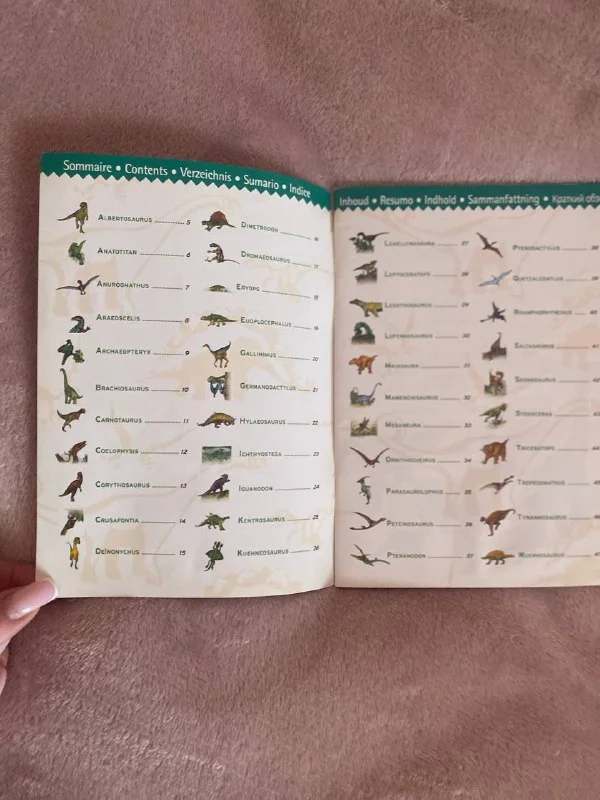 Sommaire • Contents • Verzeichnis • Sumario • Indice
ALBERTOSAURUS 5
ANATOTITAN 6
ANUROGNATHUS 7
ARAEOSCELIS 8
ARCHAEOPTERYX 9
BRACHIOSAURUS 10
CARNOTAURUS 11
COELOPHYSIS 12
CORYTHOSAURUS 13
CRUSAFONTIA 14
DEINONYCHUS 15
DIMETRODON 16
DROMAEOSAURUS 17
ERYOPS 18
EUOPLOCEPHALUS 19
GALLIMIMUS 20
GERMANODACTYLUS 21
HYLAEOSAURUS 22
ICHTHYOSTEGA 23
IGUANODON 24
KENTROSAURUS 25
KUEHNEOSAURUS 26
Inhoud • Resumo • Indhold • Sammanfattning • Краткий обз
LEAELLYNASAURA 27
LEPTOCERATOPS 28
LESOTHOSAURUS 29
LUFENGOSAURUS 30
MAIASAURA 31
MAMENCHISAURUS 32
MEGANEURA 33
ORNITHOCHEIRUS 34
PARASAUROLOPHUS 35
PETEINOSAURUS 36
PTERANODON 37
PTERODACTYLUS 38
QUETZALCOATLUS 39
RHAMPHORHYNCHUS 40
SALTASAURUS 41
SEGNOSAURUS 42
STEGOCERAS 43
TRICERATOPS 44
TROPEOGNATHUS 45
TYRANNOSAURUS
WUERHOSAURUS